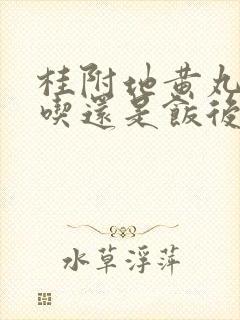 桂附地黄丸
喫還是飯後
水草浮萍